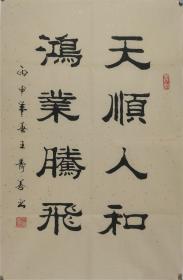 天順人和
鴻業騰飛
丙申年春王壽善書